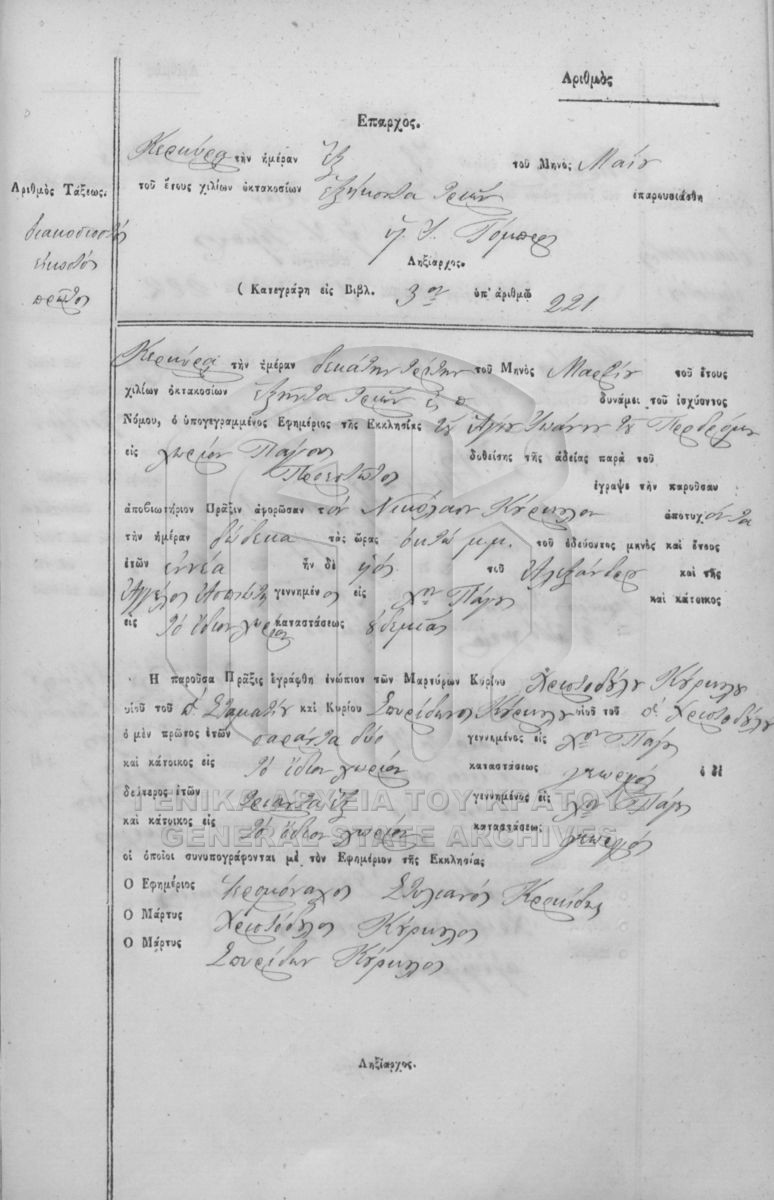 Αριθμὸς
Επαρχος.
Κερκύρα τὴν ἡμέραν ἓξ τοῦ Μηνὸς Μαΐου
Αριθμὸς Τάξεως.
τοῦ ἔτους χιλίων ὀκτακοσίων ἑξήκοντα τριῶν ἐπαρουσιάσθη
διακοσιοστός
εἰκοστός
πρῶτος
Ληξίαρχος.
( Κατεγράφη εἰς Βιβλ. 3ον ὑπ' ἀριθμῶ 221
Κερκύρα τὴν ἡμέραν δεκάτην τρίτην τοῦ Μηνὸς Μαρτίου τοῦ ἔτους
χιλίων ὀκτακοσίων ἑξῆντα τριῶν δυνάμει τοῦ ἰσχύοντος
Νόμου, ὁ ὑπογεγραμμένος Εφημέριος τῆς Εκκλησίας τοῦ Αγίου Ἰωάννου τοῦ Προδρόμου
εἰς χωρίον Πάγους δοθείσης τῆς ἀδείας παρὰ τοῦ
Προεστῶτος ἔγραψε τὴν παροῦσαν
ἀποβιωτήριον Πρᾶξιν ἀφορῶσαν τὸν Νικόλαον Κύρκυλον ἀποτυχόντα
τὴν ἡμέραν δώδεκα τὰς ὥρας ὀκτώ μ.μ. τοῦ ὁδεύοντος μηνὸς καὶ ἔτους
ἐτῶν ἐννέα ἦν δὲ υἱός τοῦ Αλεξάνδρου καὶ τῆς
Αγγέλας γεννημένος εἰς χον Πάγους καὶ κάτοικος
εἰς τὸ ἴδιον χωρίον καταστάσεως οὐδεμίας
Η παροῦσα Πρᾶξις ἐγράφθη ἐνώπιον τῶν Μαρτύρων Κυρίου Χριστοδούλου Κύρκυλου
υἱοῦ τοῦ π. Σταματίου καὶ Κυρίου Σπυρίδωνος Κύρκυλου υἱοῦ τοῦ π. Χριστοδούλου
ὁ μὲν πρῶτος ἐτῶν σαράντα δύο γεννημένος εἰς χον Πάγους
καὶ κάτοικος εἰς τὸ ἴδιον χωρίον καταστάσεως γεωργός ὁ δὲ
δεύτερος ἐτῶν τριάντα ἓξ γεννημένος εἰς χον Πάγους
καὶ κάτοικος εἰς τὸ ἴδιον χωρίον καταστάσεως γεωργός
οἱ ὁποῖοι συνυπογράφονται μὲ τὸν Εφημέριον τῆς Εκκλησίας
Ο Εφημέριος Ἱερομόναχος Στυλιανός
Ο Μάρτυς Χριστόδουλος Κύρκυλος
Ο Μάρτυς Σπυρίδων Κύρκυλος
Ληξίαρχος.
ΓΕΝΙΚΑ ΑΡΧΕΙΑ ΤΟΥ ΚΡΑΤΟΥΣ
GENERAL STATE ARCHIVES